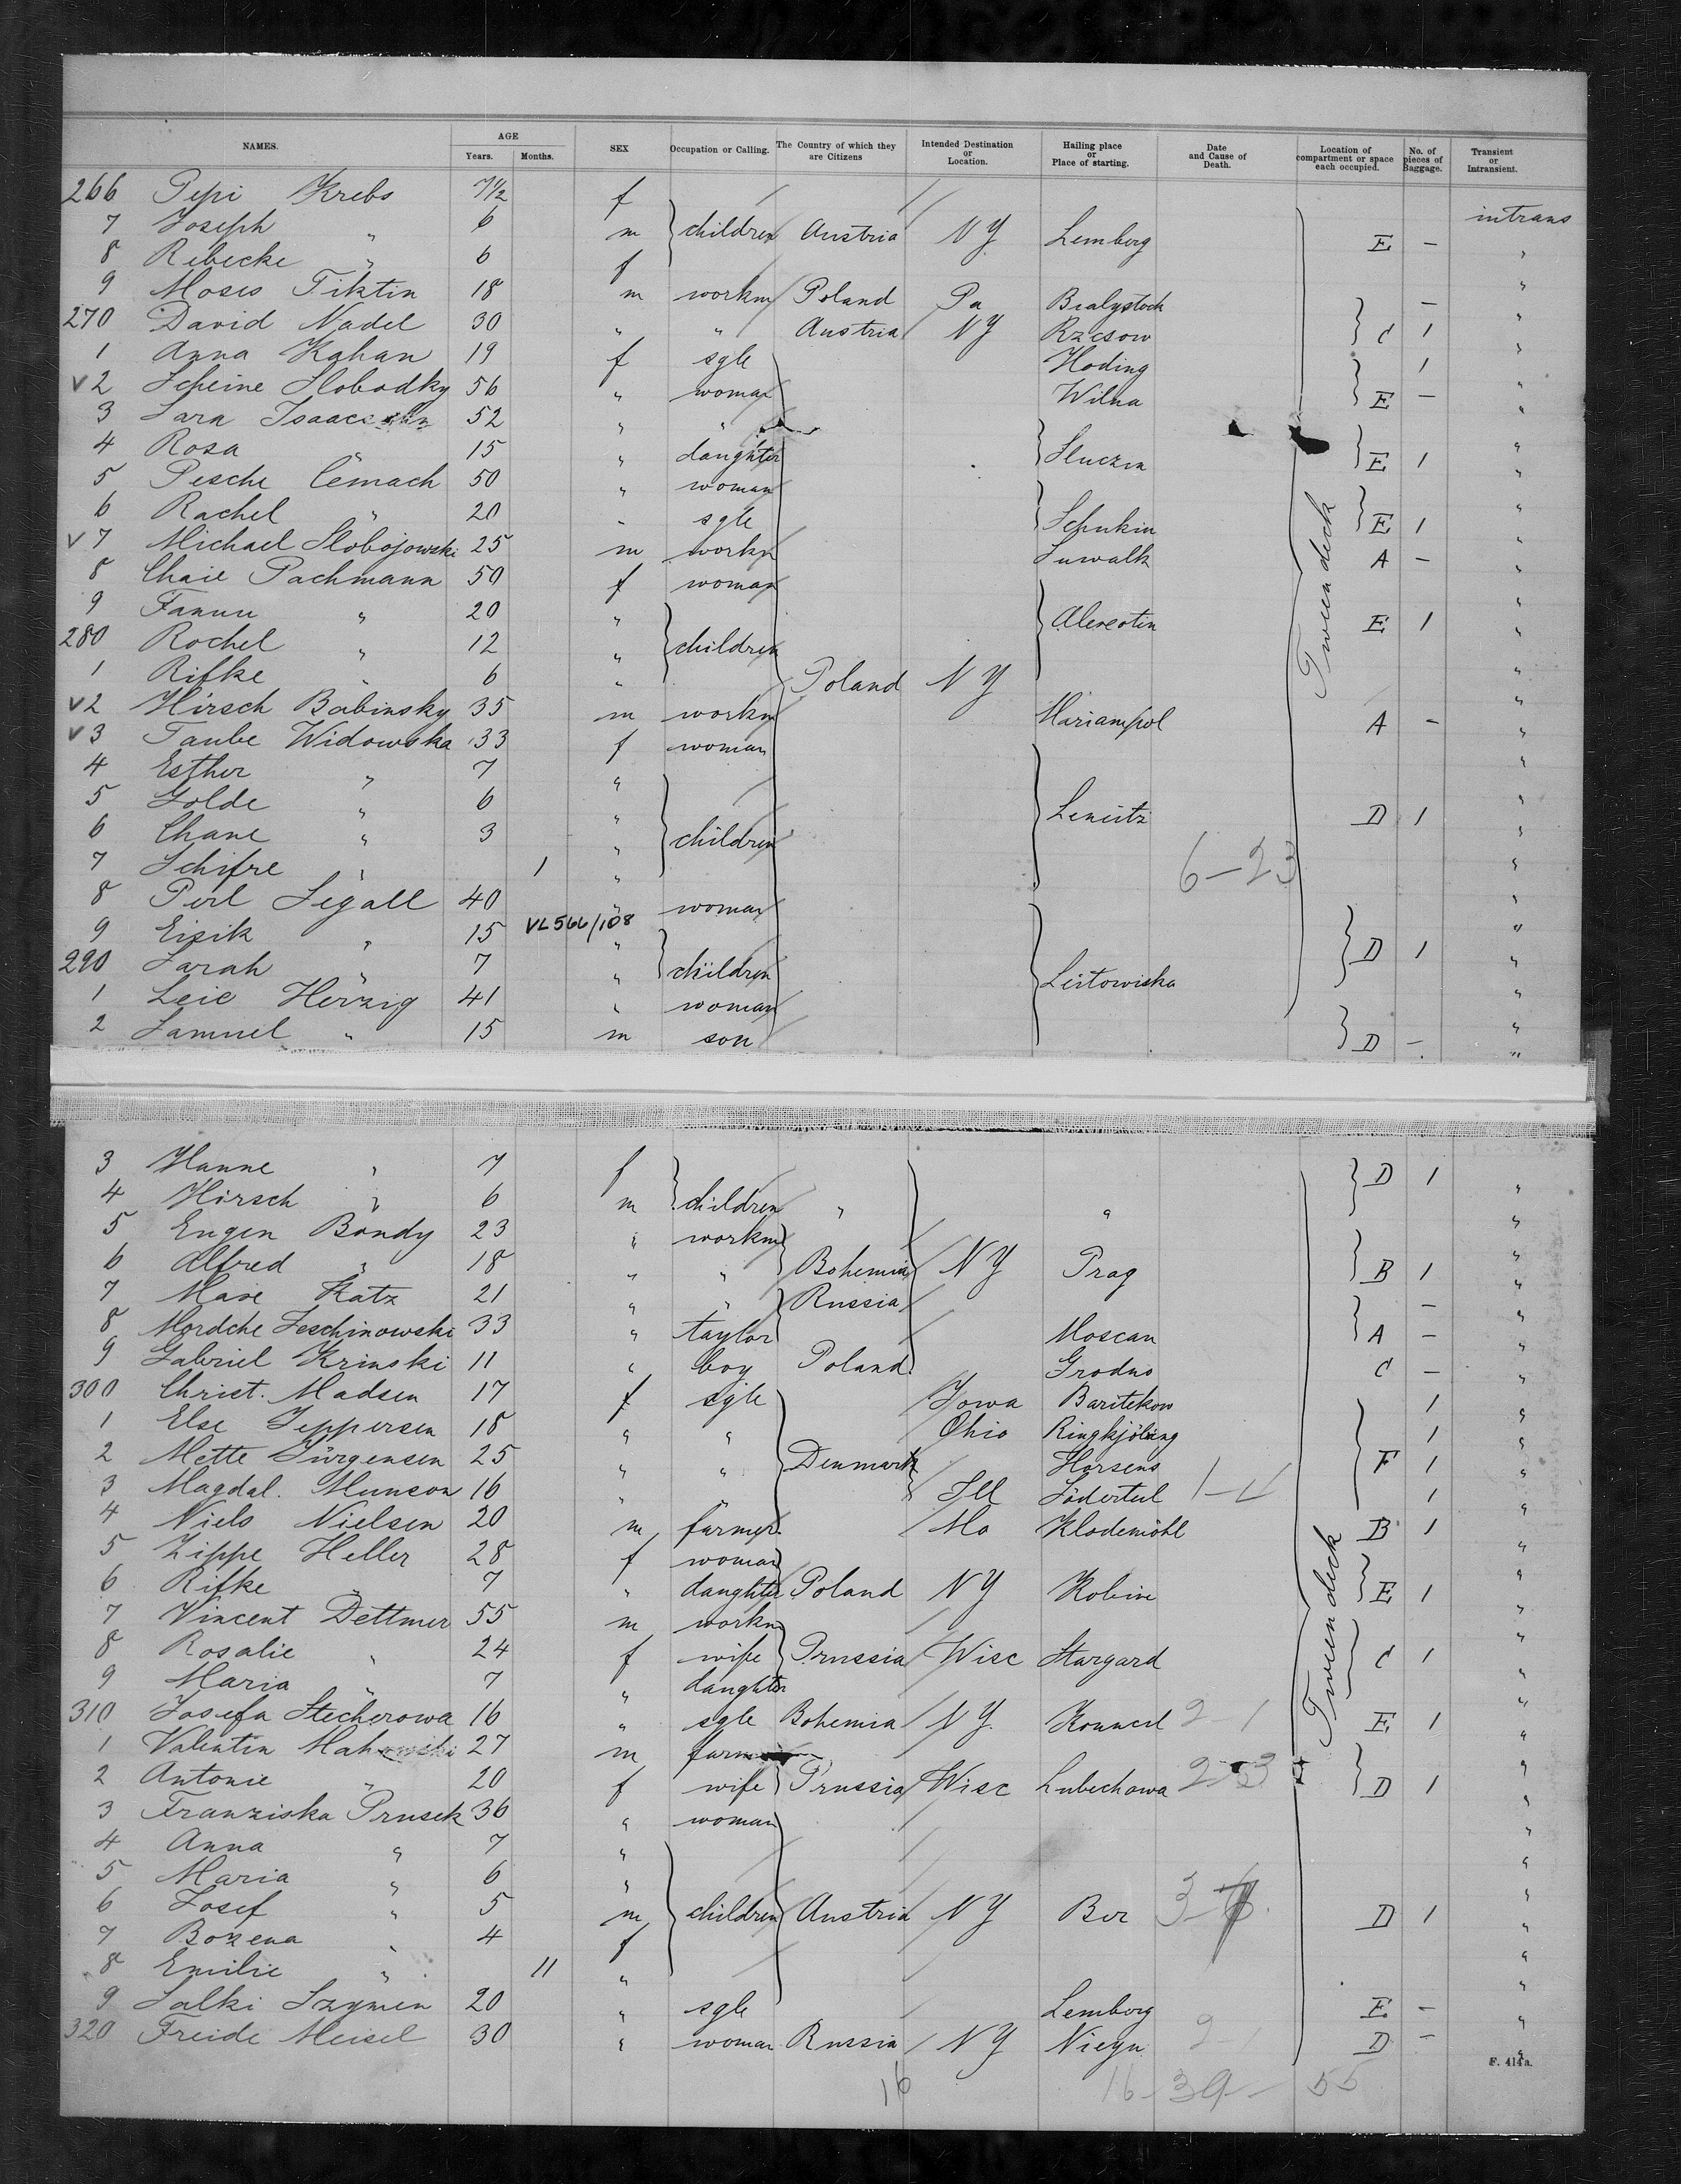 NAMES. AGE Years. Months. SEX Occupation or Calling. The Country of which they are Citizens Intended Destination or Location. Hailing place or Place of starting. Date and Cause of Death. Location of compartment or space each occupied. No. of pieces of Baggage. Transient or Intransient.
266 Pepi Krebs 7 1/2 f intrans
7 Joseph " 6 m children Austria NY Lemberg E - "
8 Rebecke " 6 f "
9 Moses Tiktin 18 m workm Poland Pa Bialystock - "
270 David Nadel 30 " " Austria NY Rzesow C 1 "
1 Anna Kahan 19 f sgle Hoding 1 "
v 2 Scheine Slobodky 56 " woman Wilna E - "
3 Sara 52 " " "
4 Rosa " 15 " daughter Sluczin E 1 "
5 Pesche Cemach 50 " woman "
6 Rachel " 20 " sgle Schukin E 1 "
v 7 Michael Slobojowski 25 m workm Suwalk A - "
8 Chaie Pachmann 50 f woman "
9 " 20 " E 1 "
280 Rochel " 12 " children "
1 Rifke " 6 " Poland NY "
v 2 Hirsch Babinsky 35 m workm Mariampol A - "
v 3 Taube Widowska 33 f woman "
4 Esther " 7 " "
5 Golde " 6 " D 1 "
6 Chane " 3 " children "
7 Schifre " 1 " 6-23 "
8 Perl Segall 40 " woman "
9 Eisik " 15 VL 566/108 " D 1 "
290 Sarah " 7 " children "
1 Leie Herzig 41 " woman Leitowiska "
2 Samuel " 15 m son D - "
Tween deck
3 Hanne " 7 f D 1 "
4 Hirsch " 6 m children " " "
5 Eugen Bondy 23 " workm "
6 Alfred " 18 " " Bohemia NY Prag B 1 "
7 Katz 21 " " Russia - "
8 Mordche Leschinowski 33 " taylor Moscau A - "
9 Gabriel Krinski 11 " boy Poland Grodno C - "
300 Christ. Madsen 17 f sgle Iowa Baritekow 1 "
1 Else Jeppersen 18 " " Ohio Ringkjöbing 1 "
2 Mette Jürgensen 25 " " Denmark Horsens F 1 "
3 Magdal. Munson 16 " Ill 1 "
4 Niels Nielsen 20 m farmer Mo Klodemöhl B 1 "
5 Zippe Heller 28 f woman "
6 Rifke " 7 " daughter Poland NY Kobin E 1 "
7 Vincent Dettmer 55 m workm "
8 Rosalie " 24 f wife Prussia Wisc Stargard C 1 "
9 Maria " 7 " daughter "
310 Josefa Stecherowa 16 " sgle Bohemia NY 2-1 E 1 "
1 Valentin 27 m "
2 Antonie " 20 f wife Prussia Wisc Lubechowa D 1 "
3 Franziska Prusek 36 " woman "
4 Anna " 7 " "
5 Maria " 6 " "
6 Josef " 5 m children Austria NY Ber D 1 "
7 Bozena " 4 f "
8 Emilie " 11 " "
9 Salki Szymen 20 " sgle Lemberg E - "
320 Freide Meisel 30 " woman Russia NY D - "
Tween deck
F. 414a.
16 16-39-55